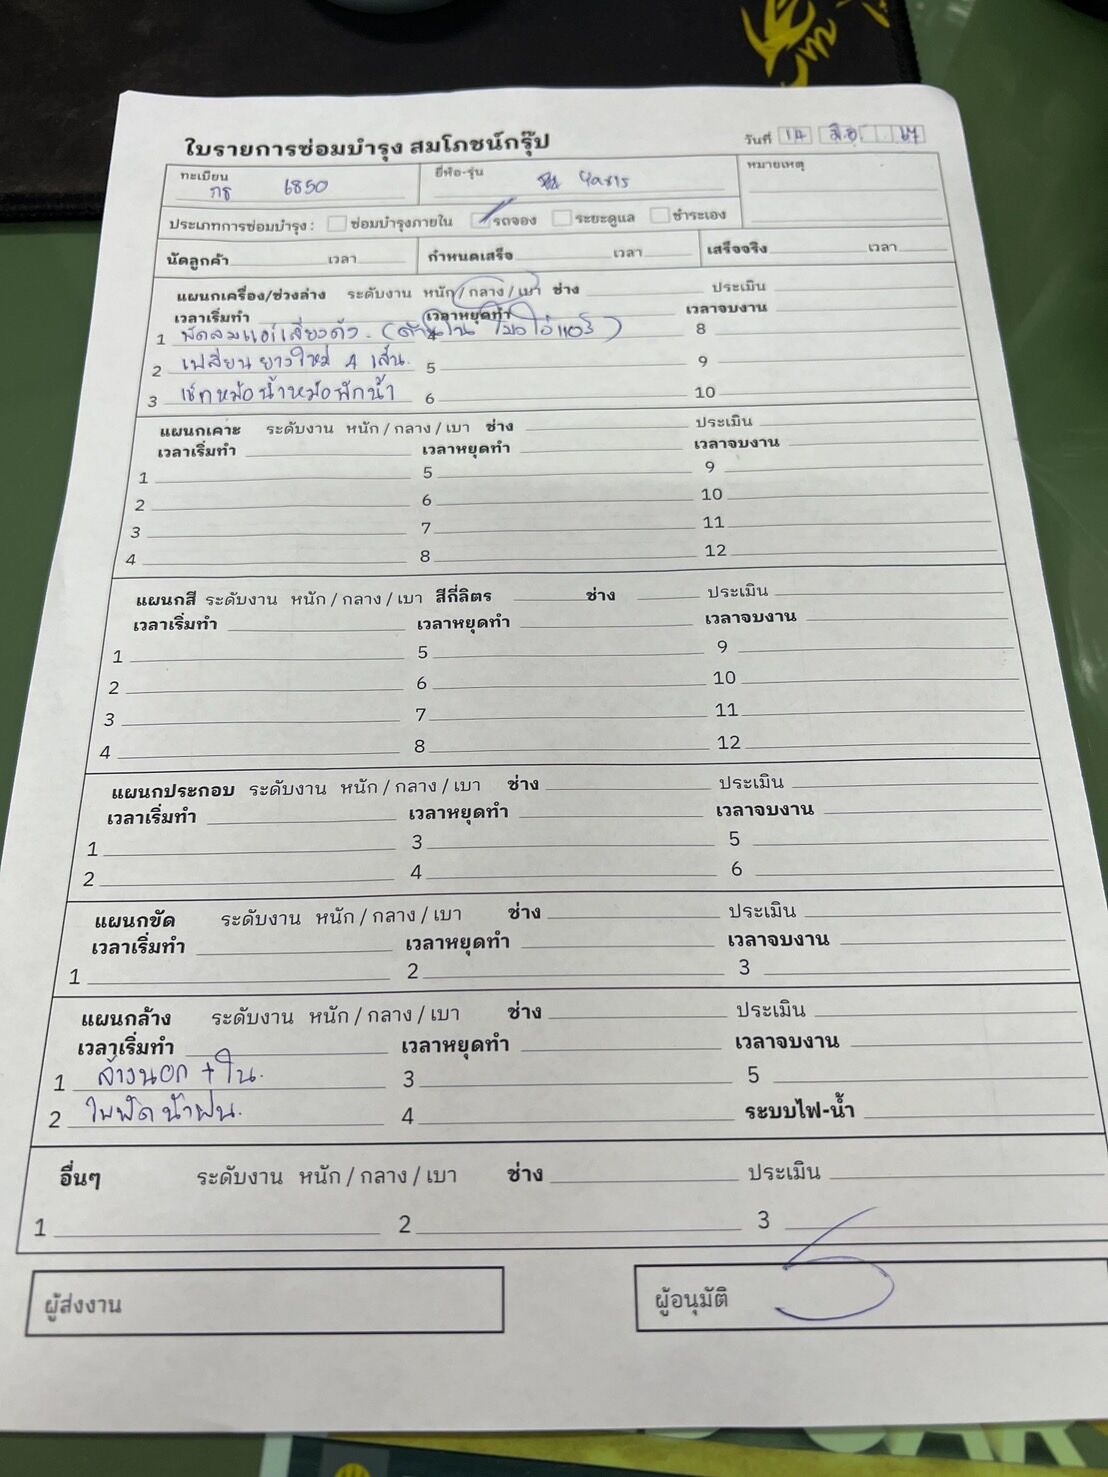 ใบรายการซ่อมบำรุง สมโภชน์กรุ๊ป
วันที่ 14 มิ.ย 67
ทะเบียน กธ 6850 ยี่ห้อ-รุ่น Yaris หมายเหตุ
ประเภทการซ่อมบำรุง : ซ่อมบำรุงภายใน รถจอง ระยะดูแล ชำระเอง
นัดลูกค้า เวลา กำหนดเสร็จ เวลา เสร็จจริง เวลา
แผนกเครื่อง/ช่วงล่าง ระดับงาน หนัก / กลาง / เบา ช่าง ประเมิน
เวลาเริ่มทำ เวลาหยุดทำ เวลาจบงาน
1 พัดลมแอร์เสียงดัง. (ด้านใน โบเวอร์) 4 8
2 เปลี่ยนยางใหม่ 4 เส้น. 5 9
3 เช็คหม้อน้ำหม้อพักน้ำ 6 10
แผนกเคาะ ระดับงาน หนัก / กลาง / เบา ช่าง ประเมิน
เวลาเริ่มทำ เวลาหยุดทำ เวลาจบงาน
1 5 9
2 6 10
3 7 11
4 8 12
แผนกสี ระดับงาน หนัก / กลาง / เบา สีกี่ลิตร ช่าง ประเมิน
เวลาเริ่มทำ เวลาหยุดทำ เวลาจบงาน
1 5 9
2 6 10
3 7 11
4 8 12
แผนกประกอบ ระดับงาน หนัก / กลาง / เบา ช่าง ประเมิน
เวลาเริ่มทำ เวลาหยุดทำ เวลาจบงาน
1 3 5
2 4 6
แผนกขัด ระดับงาน หนัก / กลาง / เบา ช่าง ประเมิน
เวลาเริ่มทำ เวลาหยุดทำ เวลาจบงาน
1 2 3
แผนกล้าง ระดับงาน หนัก / กลาง / เบา ช่าง ประเมิน
เวลาเริ่มทำ เวลาหยุดทำ เวลาจบงาน
1 ล้างนอก + ใน. 3 5
2 ใบพัดน้ำฝน. 4 ระบบไฟ-น้ำ
อื่นๆ ระดับงาน หนัก / กลาง / เบา ช่าง ประเมิน
1 2 3
ผู้ส่งงาน ผู้อนุมัติ